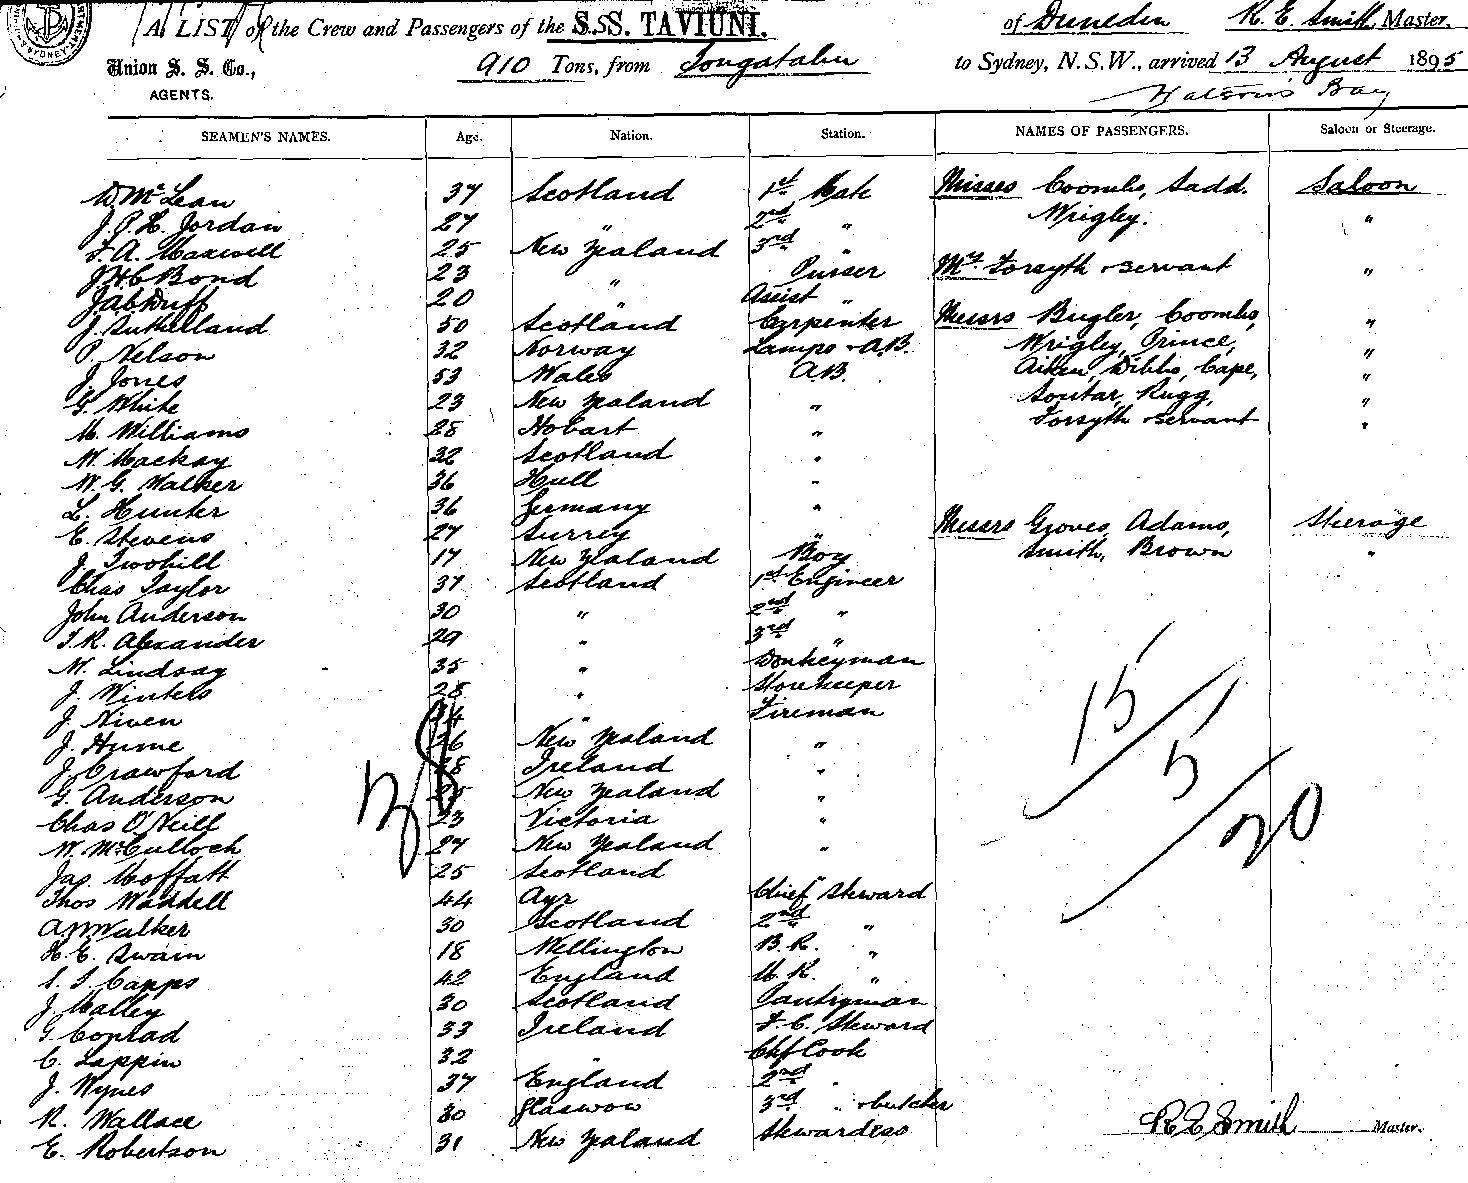 A LIST of the Crew and Passengers of the S.S. TAVIUNI. of Dunedin R. E. Smith, Master.
Union S. S. Co., 910 Tons, from Tongatabu to Sydney, N.S.W., arrived 13 August 1895
AGENTS. Watson's Bay
SEAMEN'S NAMES. Age. Nation. Station. NAMES OF PASSENGERS. Saloon or Steerage.
D. McLean 37 Scotland 1st Mate Misses Coombs, Sadd. Saloon
J. P. H. Jordan 27 " 2nd " Wrigley. "
F. A. Maxwell 25 New Zealand 3rd "
J H C Bond 23 " Purser Mrs Forsyth + servant "
J A C Duff 20 " Assist "
J. Sutherland 50 Scotland Carpenter Messrs Bugler, Coombs, "
P. Nelson 32 Norway Lamps + A.B. Wrigley, Prince, "
J. Jones 53 Wales A.B. Aiken, Dibbs, Cape, "
G. White 23 New Zealand " Soutar, Rugg, "
M. Williams 28 Hobart " Forsyth + servant "
M. Mackay 32 Scotland "
W. G. Walker 36 Hull "
L. Hunter 36 Germany "
E. Stevens 27 Surrey " Messrs Groves, Adams, Steerage
J. Twohill 17 New Zealand Boy Smith, Brown "
Chas Taylor 37 Scotland 1st Engineer
John Anderson 30 " 2nd "
T. R. Alexander 29 " 3rd "
M. Lindsay 35 " Donkeyman
J. Winters 28 " Storekeeper
J. Niven " Fireman
J. Hume 26 New Zealand "
J. Crawford Ireland "
G. Anderson New Zealand "
Chas O'Neill 23 Victoria "
W. McCulloch 27 New Zealand "
Jas. Moffatt 25 Scotland "
Thos Waddell 44 Ayr Chief Steward
A. W. Walker 30 Scotland 2nd "
H. E. Swain 18 Wellington B. R. "
S. T. Capps 42 England U. R. "
J. Malley 30 Scotland Pantryman
G. Conrad 33 Ireland F. C. Steward
C. Lappin 32 " Chf Cook
J. Wynes 37 England 2nd "
R. Wallace 30 Glasgow 3rd " + butcher
E. Robertson 31 New Zealand Stewardess
38
15
5
20
R E Smith Master.